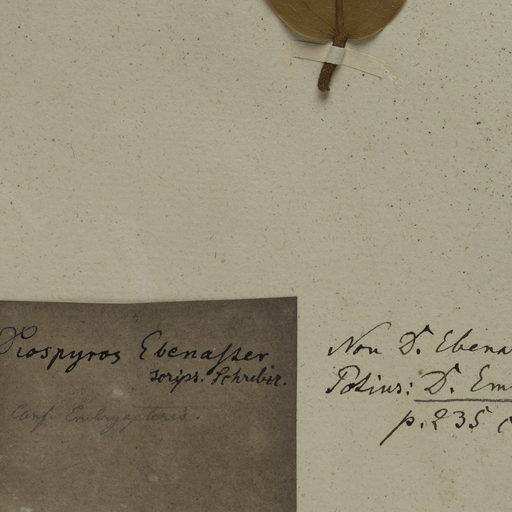 Diospyros Ebenaster
scrips. Schreber.
Conf. Embryopteris.
Non D. Ebena
Potius: D. Em
p. 235